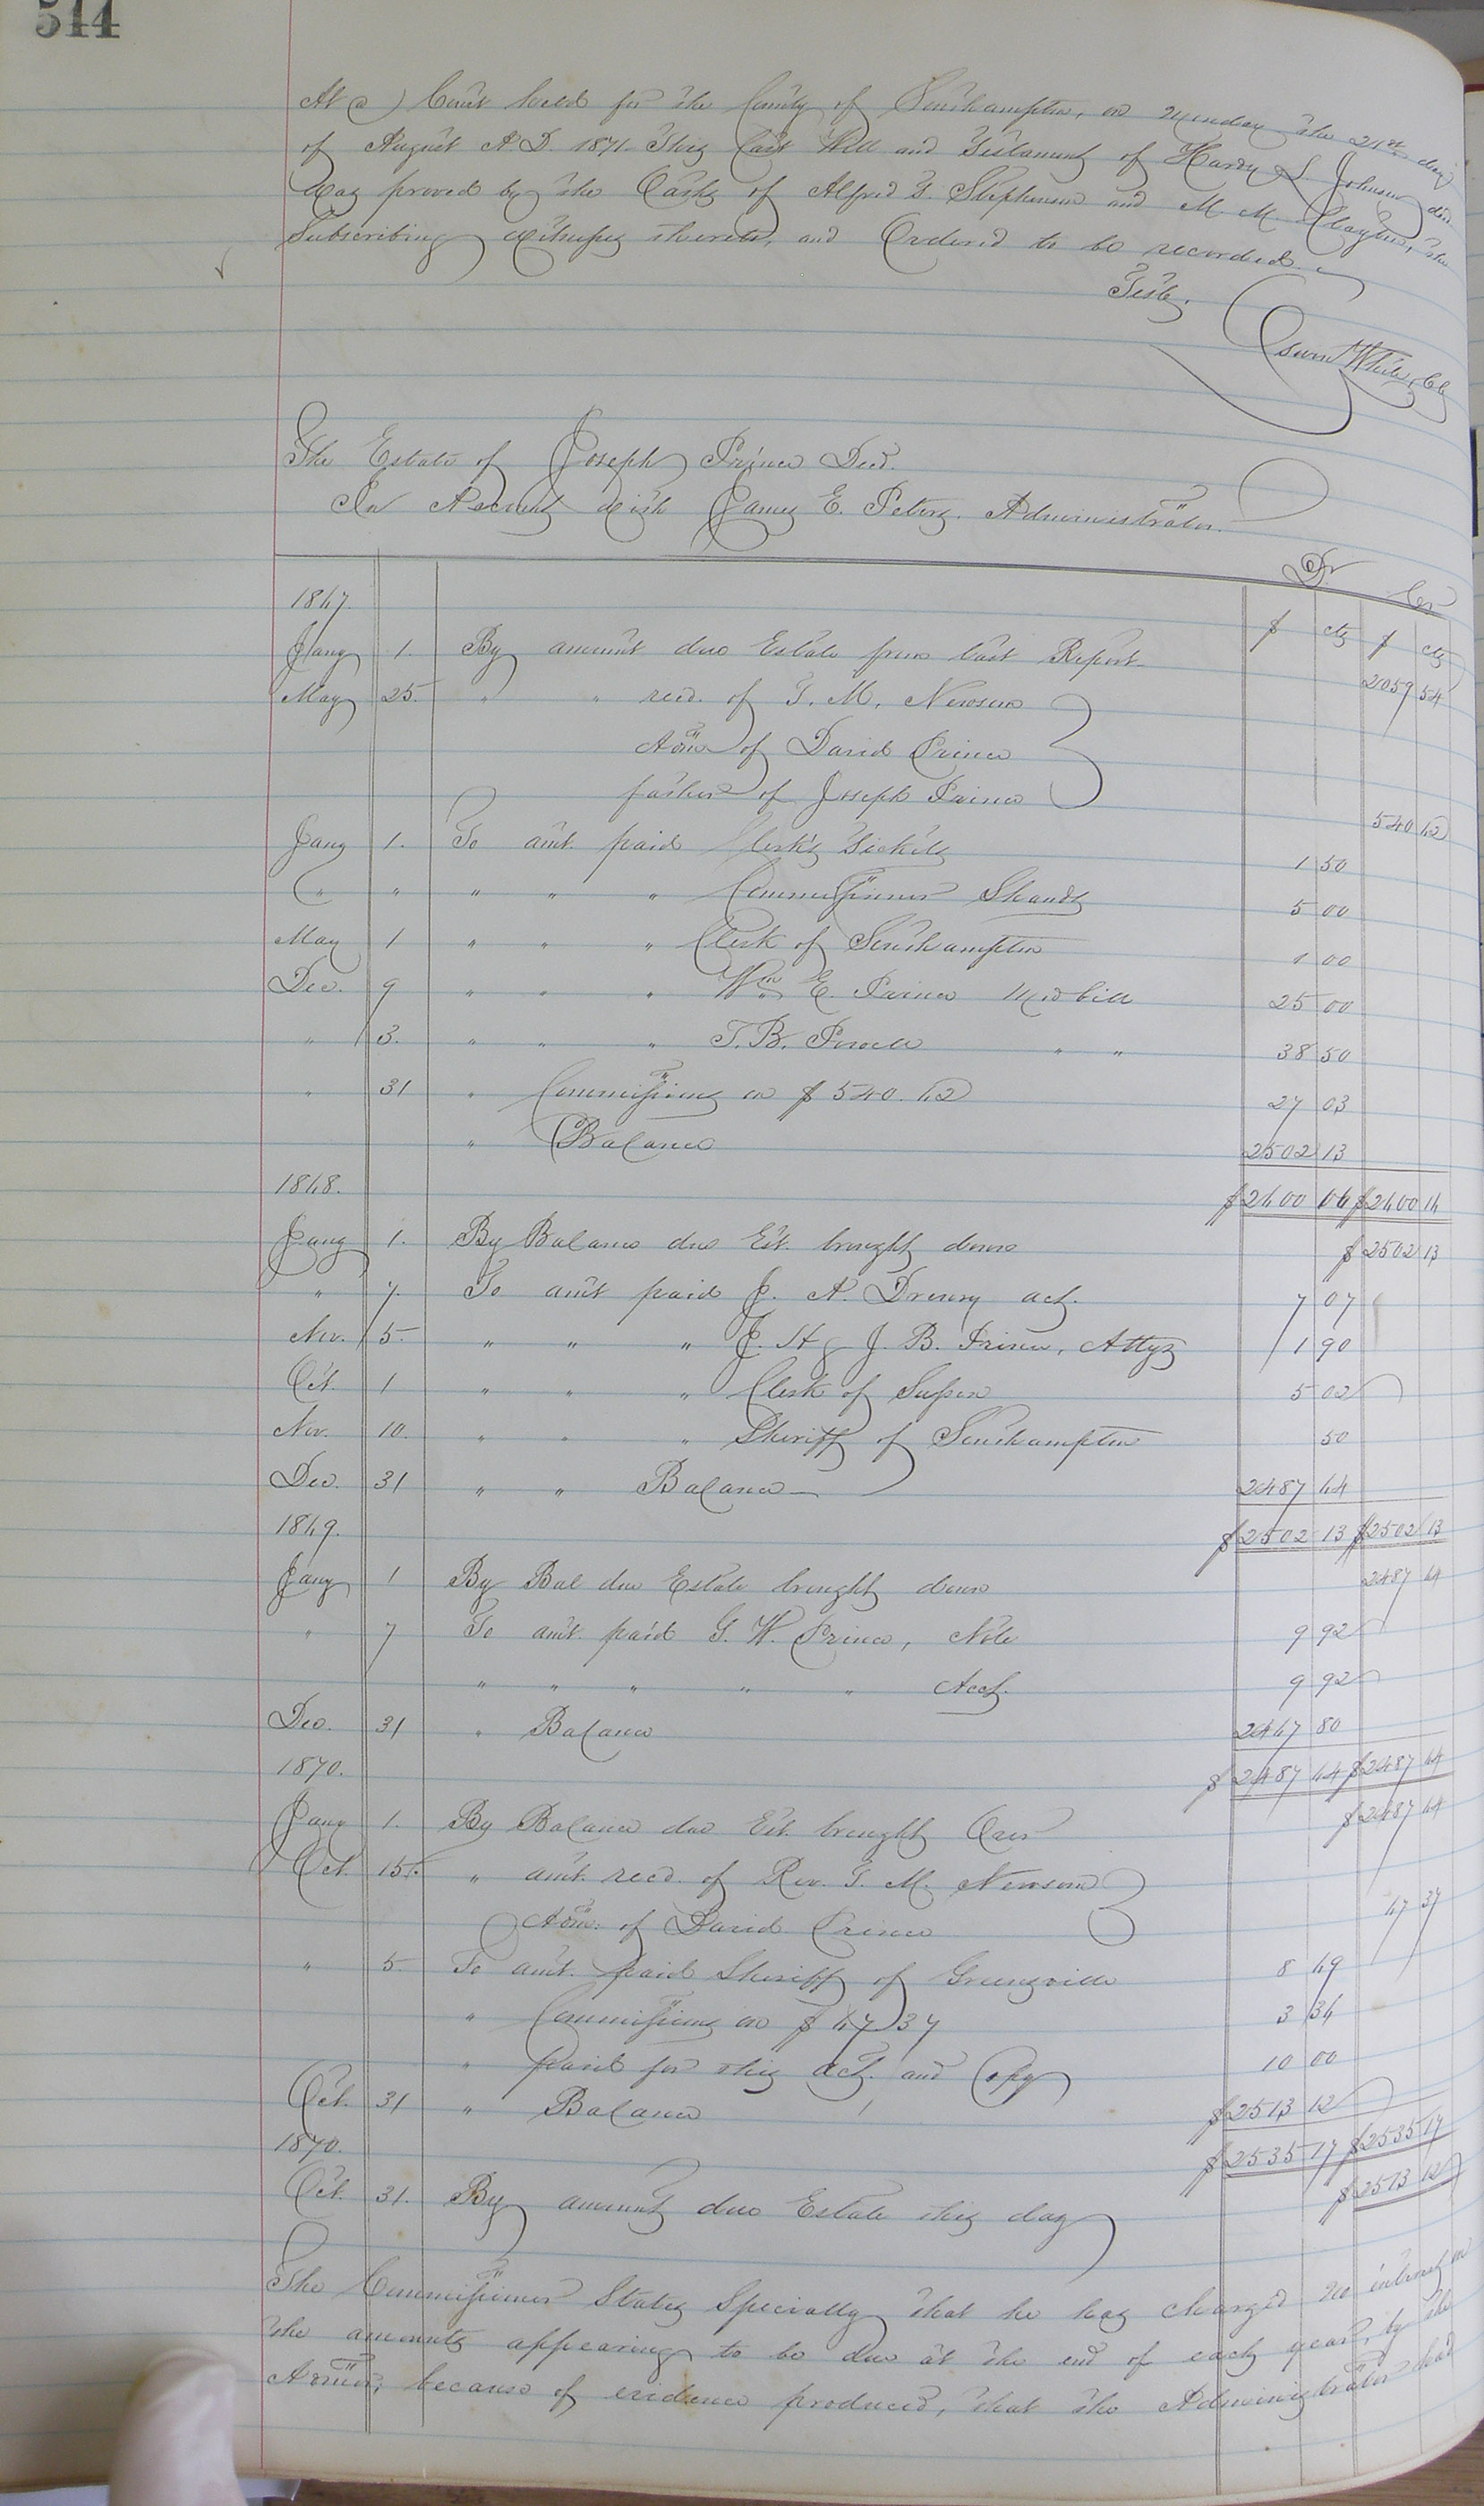 544
At a Court held for the County of Southampton, on Monday the 21st day
of August A.D. 1871. This Last Will and Testament of Hardy S. Johnson decd
was proved by the Oaths of Alfred T. Stephenson and M. M. the
Subscribing witnesses thereto, and Ordered to be recorded.
Teste,
White, Clk
The Estate of Joseph Prince Decd.
In Account with James E. Peters. Administrator.
Dr Cr
1867. $ cts $ cts
Jany 1. By amount due Estate from last Report 2059 54
May 25. " " recd. of T. M. Newsom
Admr of David Prince
father of Joseph Prince 540 62
Jany 1. To amt. paid Clerk's Tickets 1 50
" " " " " Commissioner Shands 5 00
May 1 " " " Clerk of Southampton 1 00
Dec. 9 " " " Wm E. Prince Med bill 25 00
" 13. " " " T. B. Powell " " 38 50
" 31 " Commissions on $540.62 27 03
" Balance 2502 13
1868. $2600 16 $2600 16
Jany 1. By Balance due Est. brought down $2502 13
" 7. To amt paid J. A. Drewry act. 7 07
Nov. 5. " " " J. H & J. B. Prince, Attys 1 90
Oct. 1 " " " Clerk of Sussex 5 02
Nov. 10. " " " Sheriff of Southampton 50
Dec. 31 " " Balance 2487 64
1869. $2502 13 $2502 13
Jany 1 By Bal due Estate brought down 2487 64
" 7 To amt. paid G. W. Prince, Note 9 92
" " " " " Acct. 9 92
Dec. 31 " Balance 2467 80
1870. $2487 64 $2487 64
Jany 1. By Balance due Est. brought Over $2487 64
Oct. 15. " amt. recd. of Rev. T. M. Newsom
Admr. of David Prince 67 37
" 5 To amt. paid Sheriff of Greensville 8 69
" Commissions on $67 37 3 36
" paid for this act. and Copy 10 00
Oct. 31 " Balance $2513 12
1870. $2535 17 $2535 17
Oct. 31. By amount due Estate this day $2513 12
The Commissioner States Specially that he has charged no interest on
the amounts appearing to be due at the end of each year, by the
Admr, because of evidence produced, that the Administrator had